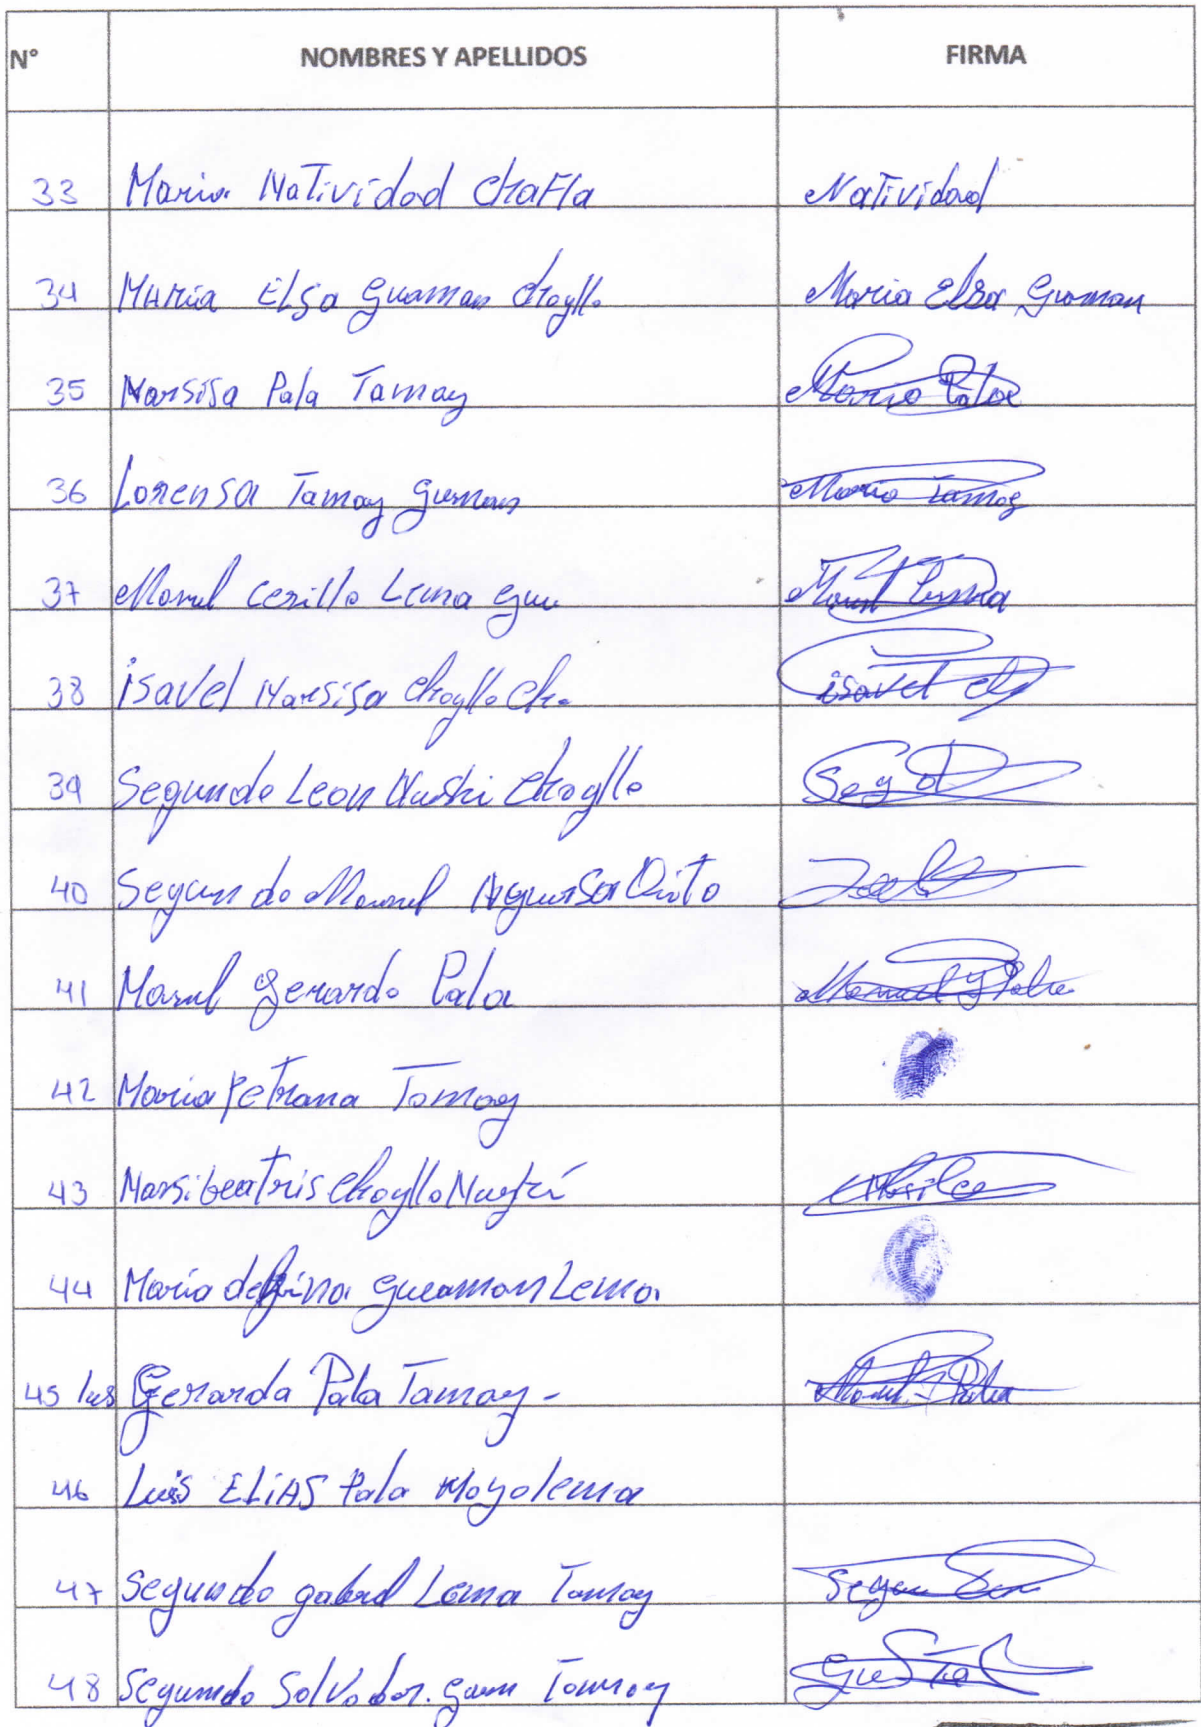 N° NOMBRES Y APELLIDOS FIRMA
33 Maria Natividad Chafla Natividad
34 Maria Elsa Guaman Chayllo Maria Elsa Guaman
35 Narsisa Pala Tamay Maria Pala
36 Lorensa Tamay Guman Maria Tamay
37 Manul Cerillo Lema gua Manul Lema
38 isavel Narsisa Chayllo Ch. isavel
39 Segundo Leon Naski Chayllo Seg
40 Segundo Manuel Aguinsa Quito
41 Manul Gerardo Pala Manuel Pala
42 Maria Petrona Tamay
43 Marsi beatris Chayllo
44 Maria delfina guaman Lema
45 Gerarda Pala Tamay - Manul Pala
46 Luis ELiAS Pala Moyolema
47 Segundo gabriel Lema Tamay Segun
48 Segundo Salvador. Tamay